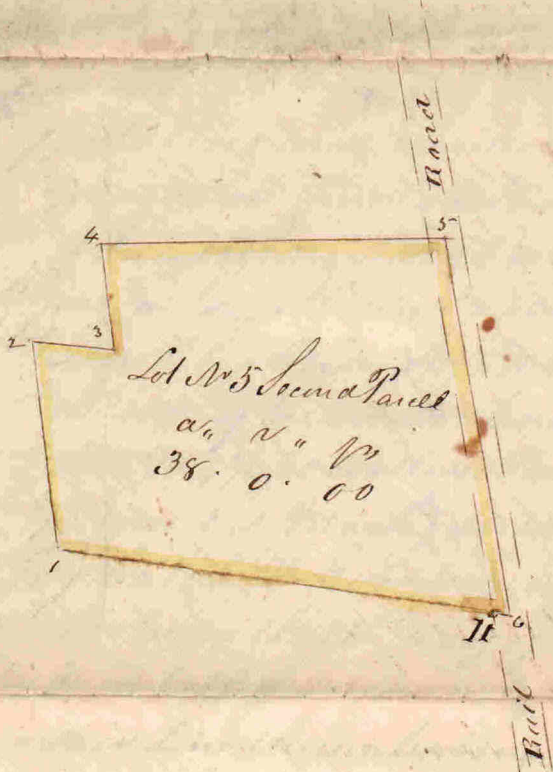 Road
4
5
2
3
Lot No 5 Second Parcel
a,, r,, p
38. 0. 00
1
6
It
Rail